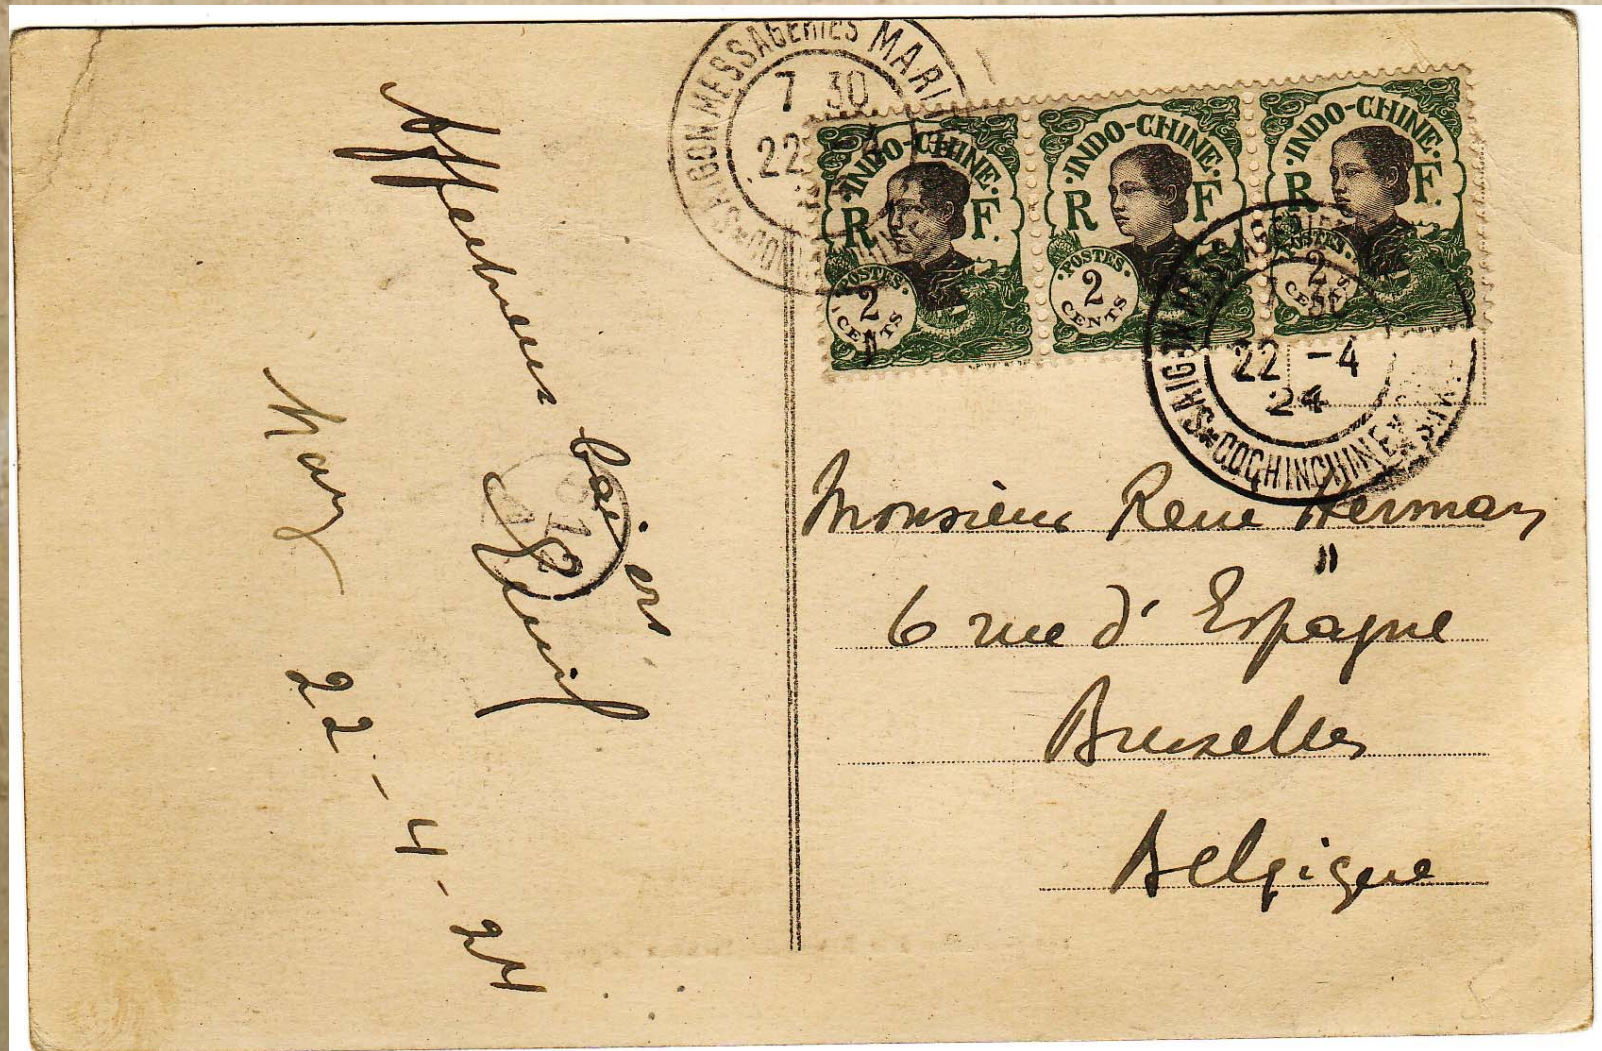 Affectueux baisers
22-4-24
SAIGON MESSAGERIES MARI
7 30
22 -4
COCHINCHINE
INDO-CHINE
R F.
POSTES
2
CENTS
INDO-CHINE
R F
POSTES
2
CENTS
INDO-CHINE
R F.
POSTES
2
CENTS
22 -4
24
COCHINCHINE
612
Monsieur Rene Herman
6 rue d'Espagne
Bruxelles
Belgique